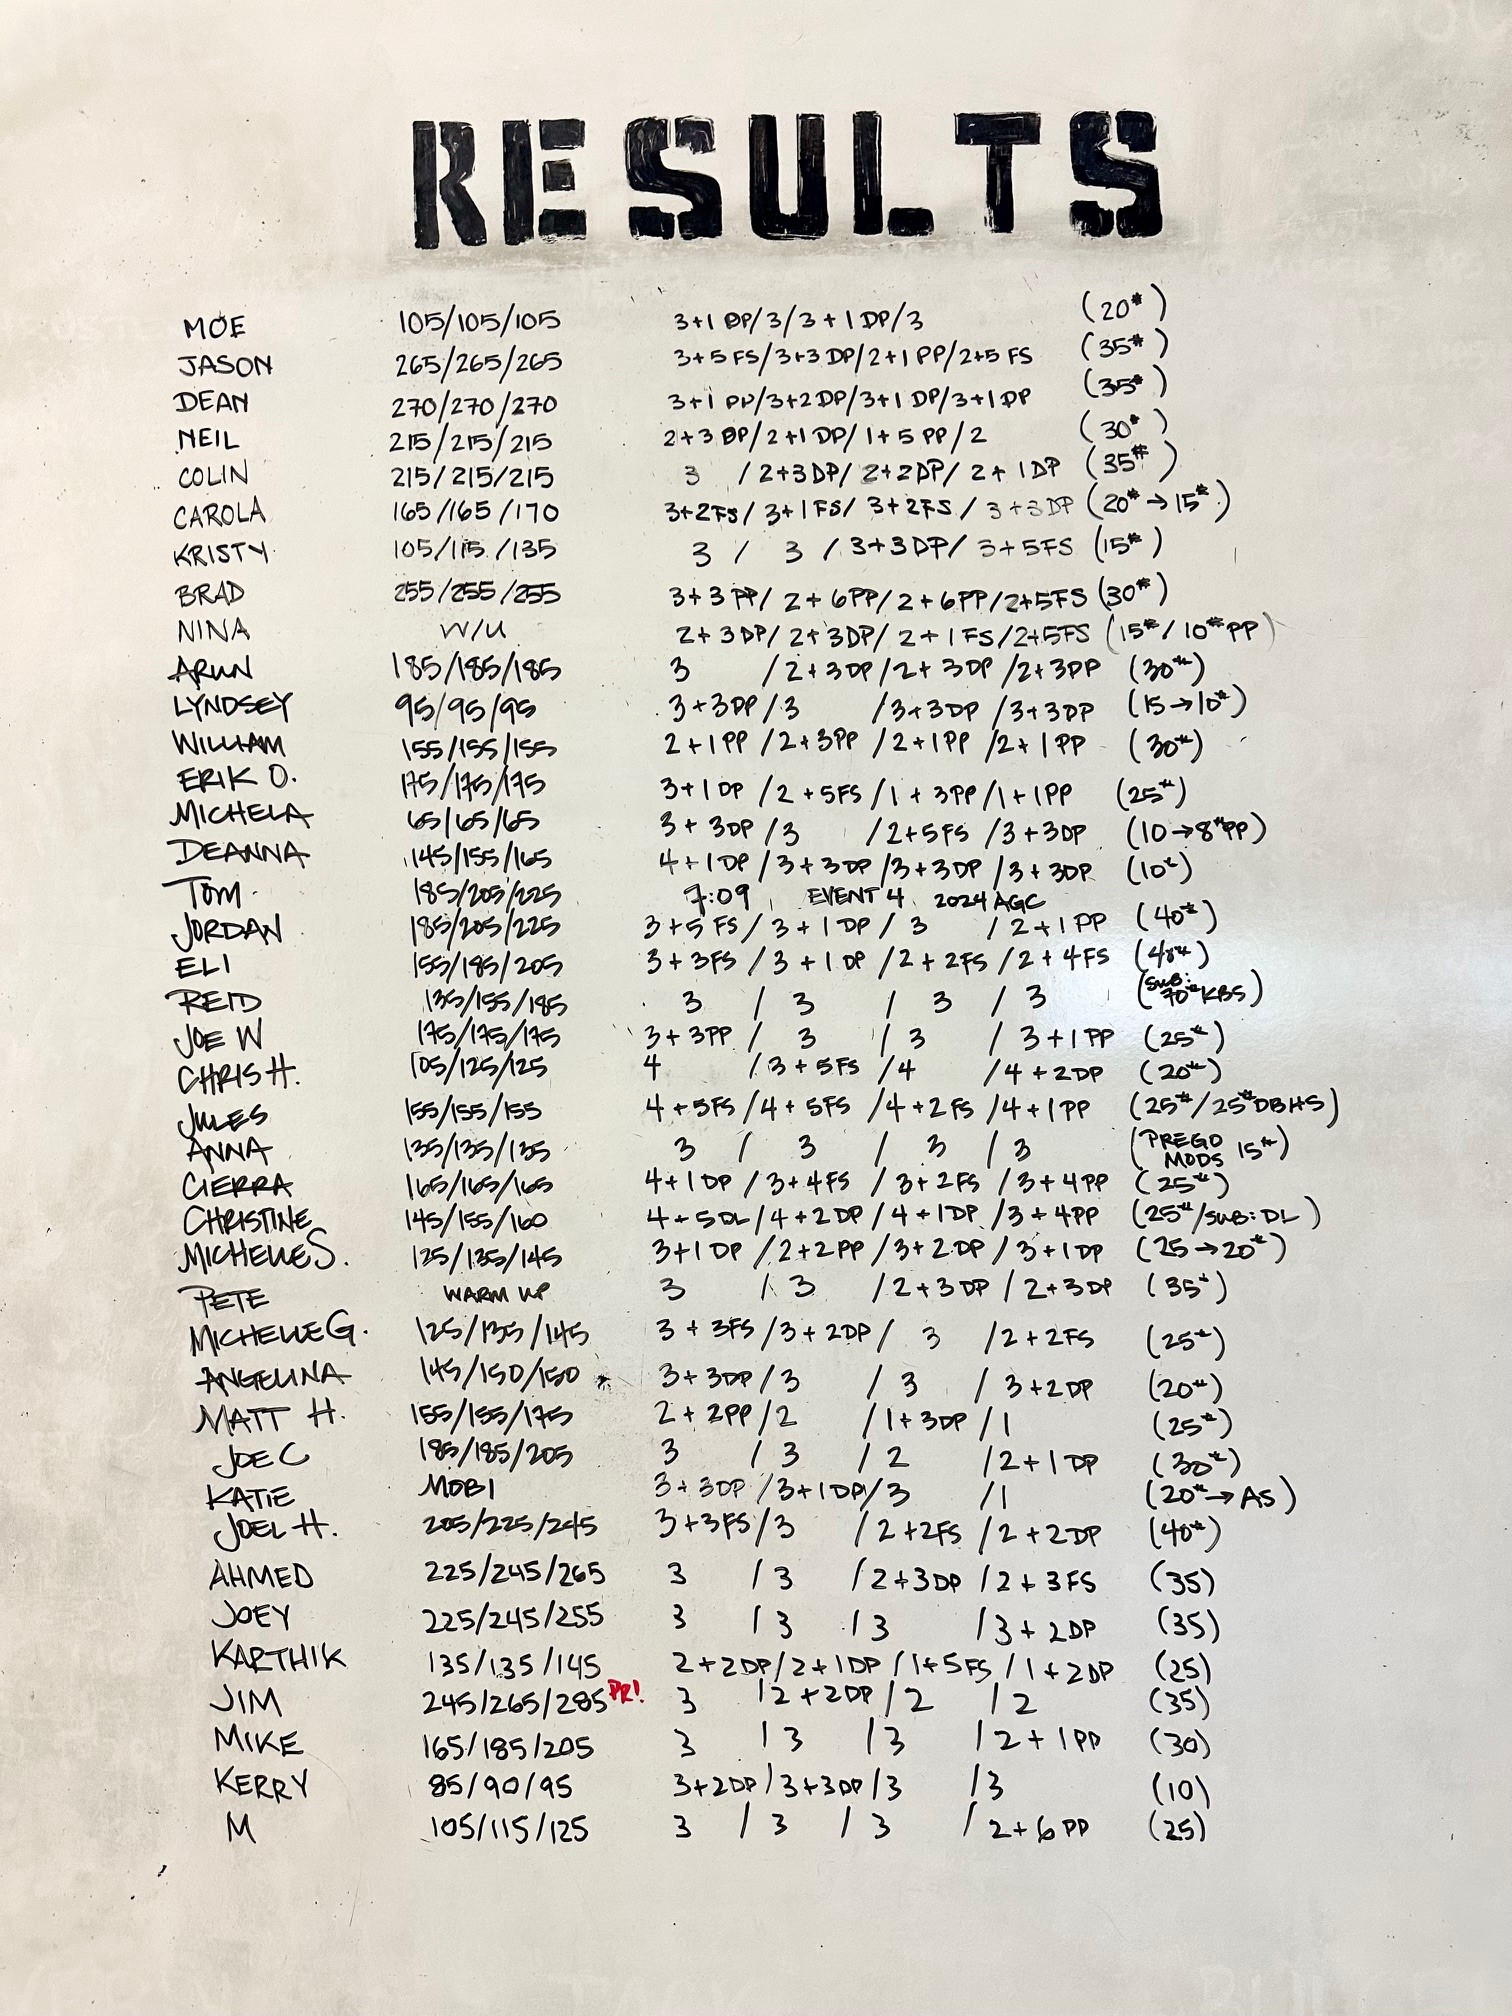 RESULTS
MOE 105/105/105 3+1 DP/3/3+1DP/3 (20#)
JASON 265/265/265 3+5FS/3+3DP/2+1PP/2+5FS (35#)
DEAN 270/270/270 3+1 /3+2DP/3+1DP/3+1DP (35#)
NEIL 215/215/215 2+3DP/2+1DP/1+5PP/2 (30#)
COLIN 215/215/215 3 /2+3DP/2+2DP/2+1DP (35#)
CAROLA 165/165/170 3+2FS/3+1FS/3+2FS/3+3DP (20#→15#)
KRISTY 105/115/135 3 / 3 /3+3DP/3+5FS (15#)
BRAD 255/255/255 3+3PP/2+6PP/2+6PP/2+5FS (30#)
NINA W/U 2+3DP/2+3DP/2+1FS/2+5FS (15#/10#PP)
ARUN 185/185/185 3 /2+3DP/2+3DP/2+3DP (30#)
LYNDSEY 95/95/95 3+3DP/3 /3+3DP/3+3DP (15→10#)
WILLIAM 155/155/155 2+1PP/2+3PP/2+1PP/2+1PP (30#)
ERIK O. 175/175/175 3+1DP/2+5FS/1+3PP/1+1PP (25#)
MICHELA 65/65/65 3+3DP/3 /2+5FS/3+3DP (10→8#PP)
DEANNA 145/155/165 4+1DP/3+3DP/3+3DP/3+3DP (10#)
TOM 185/205/225 7:09 EVENT 4 2024 AGC
JORDAN 185/205/225 3+5FS/3+1DP/3 /2+1PP (40#)
ELI 155/185/205 3+3FS/3+1DP/2+2FS/2+4FS (40#)
REID 135/155/185 3 / 3 / 3 / 3 (SUB: 70#KBS)
JOE W 175/175/175 3+3PP/ 3 / 3 /3+1PP (25#)
CHRIS H. 105/125/125 4 /3+5FS/4 /4+2DP (20#)
JULES 155/155/155 4+5FS/4+5FS/4+2FS/4+1PP (25#/25#DBHS)
ANNA 135/135/135 3 / 3 / 3 / 3 (PREGO MODS 15#)
CIERRA 165/165/165 4+1DP/3+4FS/3+2FS/3+4PP (25#)
CHRISTINE 145/155/160 4+5DL/4+2DP/4+1DP/3+4PP (25#/SUB:DL)
MICHELLE S. 125/135/145 3+1DP/2+2PP/3+2DP/3+1DP (25→20#)
PETE WARM UP 3 / 3 /2+3DP/2+3DP (35#)
MICHELLE G. 125/135/145 3+3FS/3+2DP/ 3 /2+2FS (25#)
ANGELINA 145/150/150 3+3DP/3 / 3 /3+2DP (20#)
MATT H. 155/155/175 2+2PP/2 /1+3DP/1 (25#)
JOE C 185/185/205 3 / 3 / 2 /2+1DP (30#)
KATIE MOBI 3+3DP/3+1DP/3 /1 (20#→AS)
JOEL H. 205/225/245 3+3FS/3 /2+2FS/2+2DP (40#)
AHMED 225/245/265 3 / 3 /2+3DP/2+3FS (35)
JOEY 225/245/255 3 / 3 / 3 /3+2DP (35)
KARTHIK 135/135/145 2+2DP/2+1DP/1+5FS/1+2DP (25)
JIM 245/265/285 PR! 3 /2+2DP/2 /2 (35)
MIKE 165/185/205 3 / 3 / 3 /2+1PP (30)
KERRY 85/90/95 3+2DP/3+3DP/3 /3 (10)
M 105/115/125 3 / 3 / 3 /2+6PP (25)